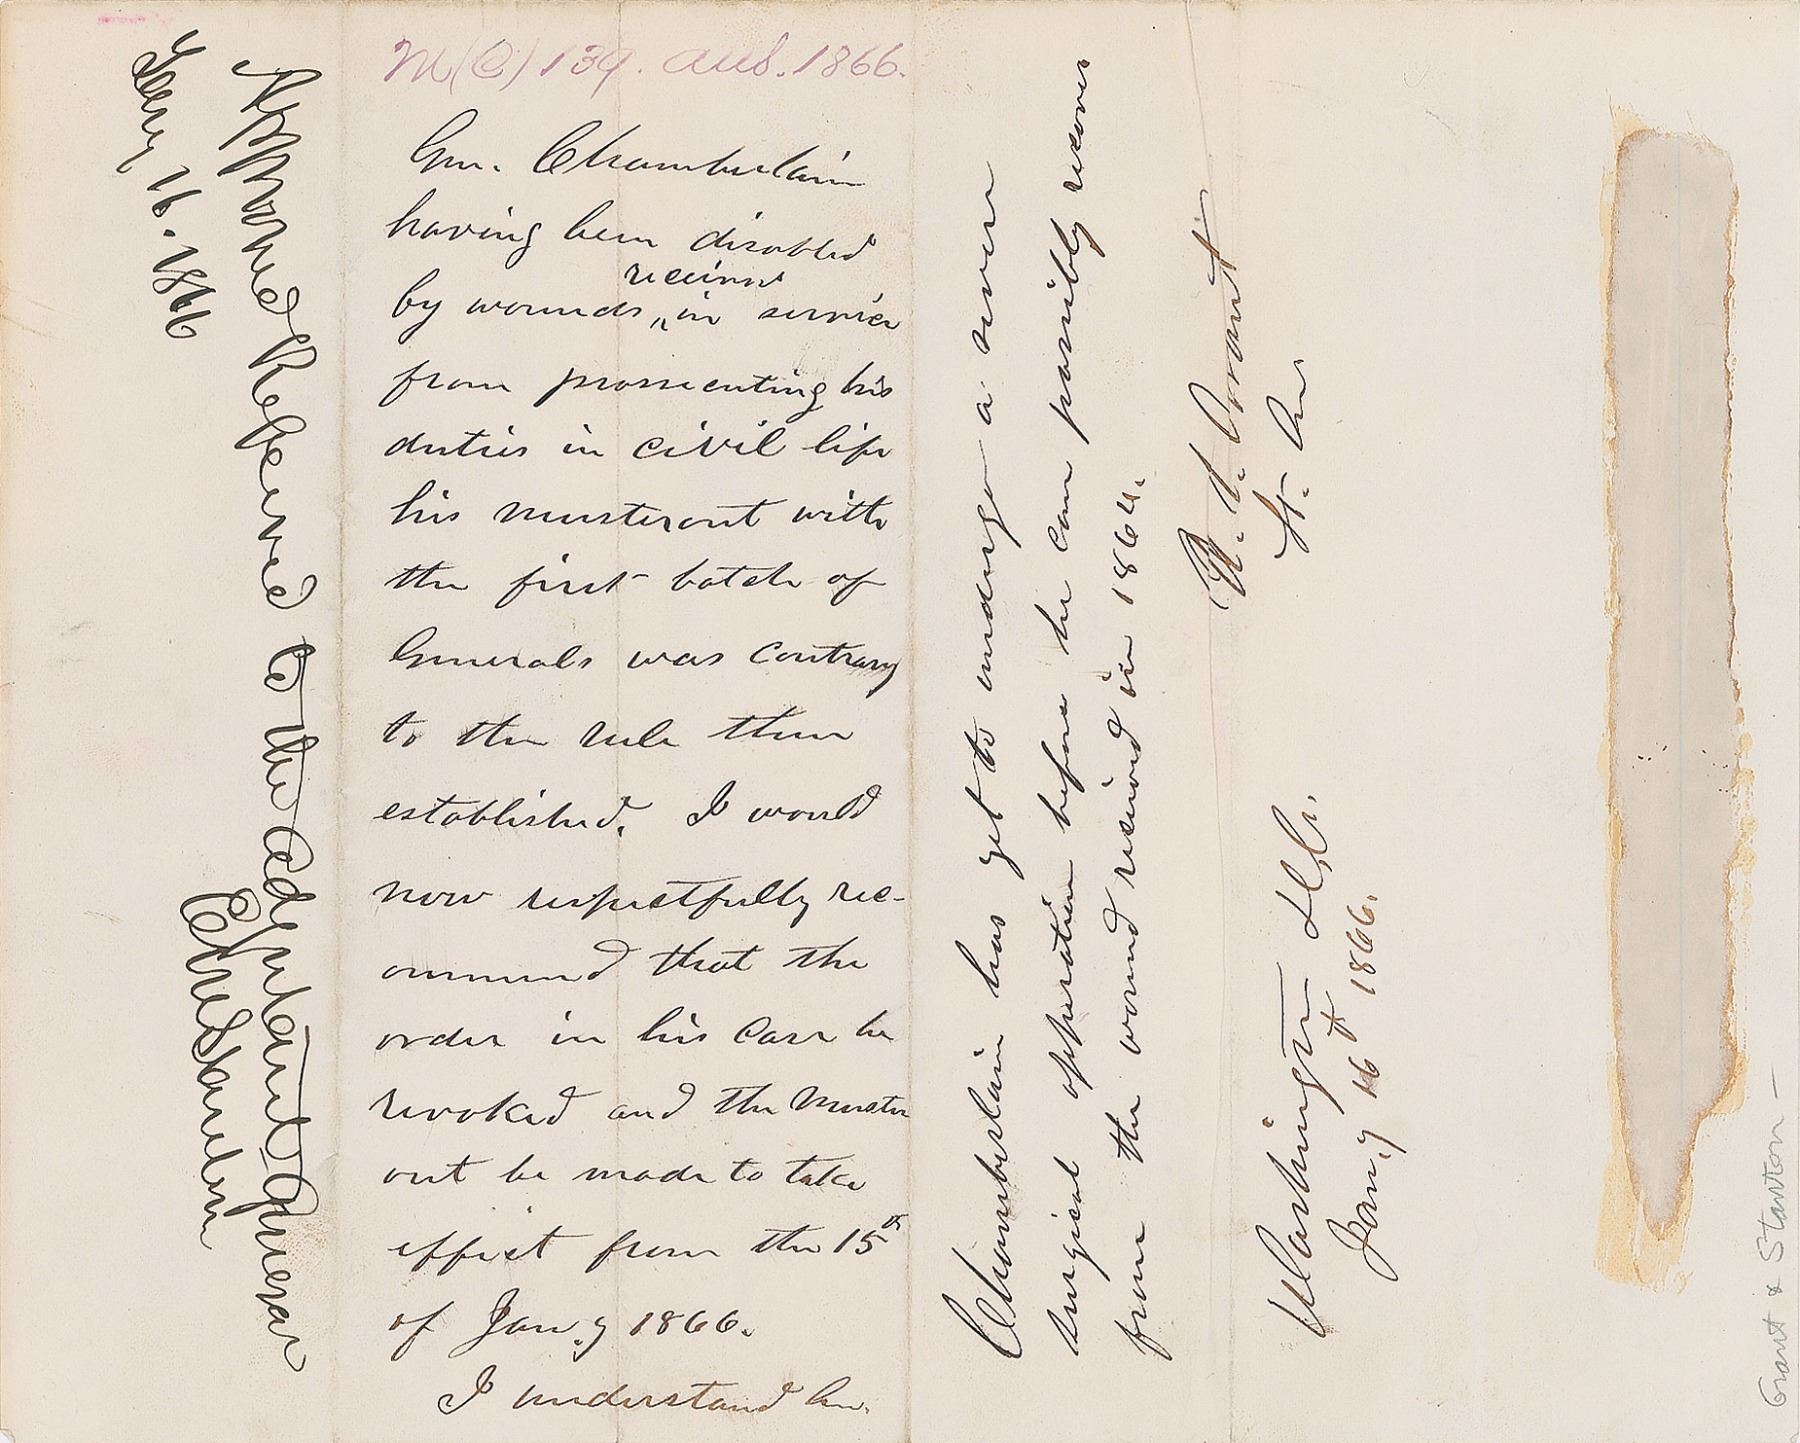 M(C)139. AUS. 1866.
Gen. Chamberlain
having been disabled
by wounds, received in service
from prossecuting his
duties in civil life
his musterout with
the first batch of
Generals was contrary
to the rule then
established. I would
now respectfully rec-
ommend that the
order in his case be
revoked and the muster
out be made to take
effect from the 15th
of Jan.y 1866.
I understand Gen.
Chamberlain has yet to undergo a severe
surgical opperation before he can possibly recover
from the wound received in 1864.
U. S. Grant
Lt. Gn.
Washington D.C.
Jan.y 16th 1866.
Approved & Referred to the Adjutant General
Edw M Stanton
Jany 16. 1866
Grant & Stanton —